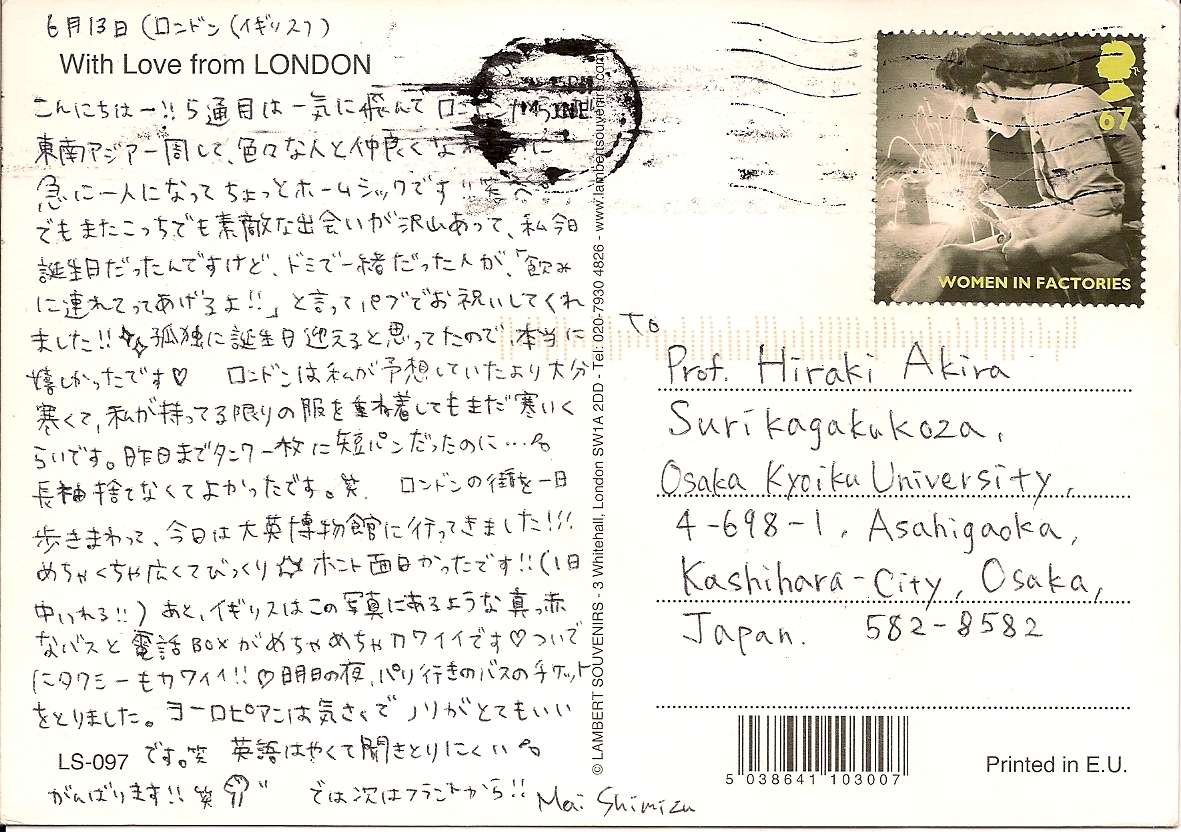 6月13日(ロンドン(イギリス))
With Love from LONDON
こんにちはー!!5通目は一気に飛んで ロンドンから
東南アジア一周して、色々な人と仲良くなれ に
急に一人になって ちょっとホームシックです!!笑
でもまたこっちでも素敵な出会いが沢山あって、私今日
誕生日だったんですけど、ドミで一緒だった人が、「飲み
に連れてってあげるよ!!」と言ってパブでお祝いしてくれ
ました!! 孤独に誕生日迎えると思ってたので、本当に
嬉しかったです♡ ロンドンは私が予想していたより大分
寒くて、私が持ってる限りの服を重ね着してもまだ寒いく
らいです。昨日までタンクー枚に短パンだったのに…。
長袖捨てなくてよかったです。笑 ロンドンの街を一日
歩きまわって、今日は大英博物館に行ってきました!!!
めちゃくちゃ広くてびっくり☆ ホント面白かったです!!(1日
中いれる!!) あと、イギリスはこの写真にあるような真っ赤
なバスと電話BOXがめちゃめちゃカワイイです♡ついで
にタクシーもカワイイ!!♡明日の夜、パリ行きのバスのチケット
をとりました。ヨーロピアンは気さくでノリがとてもいい
LS-097 です。笑 英語はやくて聞きとりにくい。
がんばります!! 笑 では次はフランスから!! Mai Shimizu
© LAMBERT SOUVENIRS - 3 Whitehall, London SW1A 2DD - Tel: 020-7930 4826 - www.lambertsouvenirs.com
67
WOMEN IN FACTORIES
To
Prof. Hiraki Akira
Surikagakukoza,
Osaka Kyoiku University,
4-698-1, Asahigaoka,
Kashihara-City, Osaka,
Japan. 582-8582
5 038641 103007
Printed in E.U.